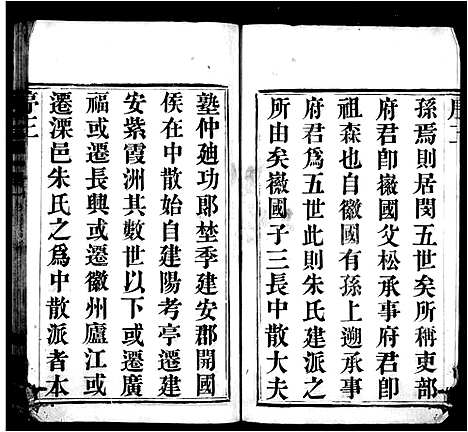 孫焉則居閔五世矣所稱吏部
府君卽徽國父松承事府君卽
祖森也自徽國有孫上遡承事
府君爲五世此則朱氏建派之
所由矣徽國子三長中散大夫
塾仲廸功郎埜季建安郡開國
侯在中散始自建陽考亭遷建
安紫霞洲其數世以下或遷廣
福或遷長興或遷徽州廬江或
遷溧邑朱氏之爲中散派者本